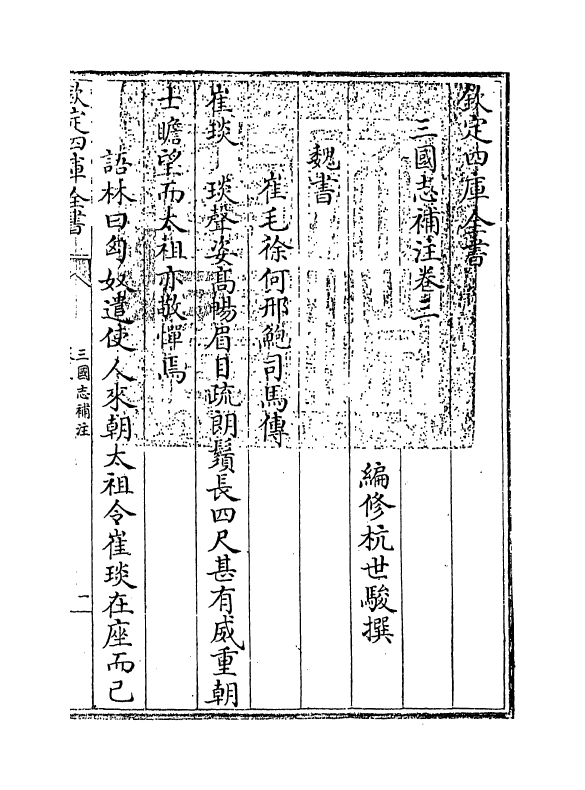 欽定四庫全書
三國志補注卷三
編修杭世駿撰
魏書
崔毛徐何邢鮑司馬傳
崔琰 琰聲姿髙暢眉目疏朗鬚長四尺甚有威重朝
士瞻望而太祖亦敬憚焉
語林曰匈奴遣使人來朝太祖令崔琰在座而己
欽定四庫全書
三國志補注